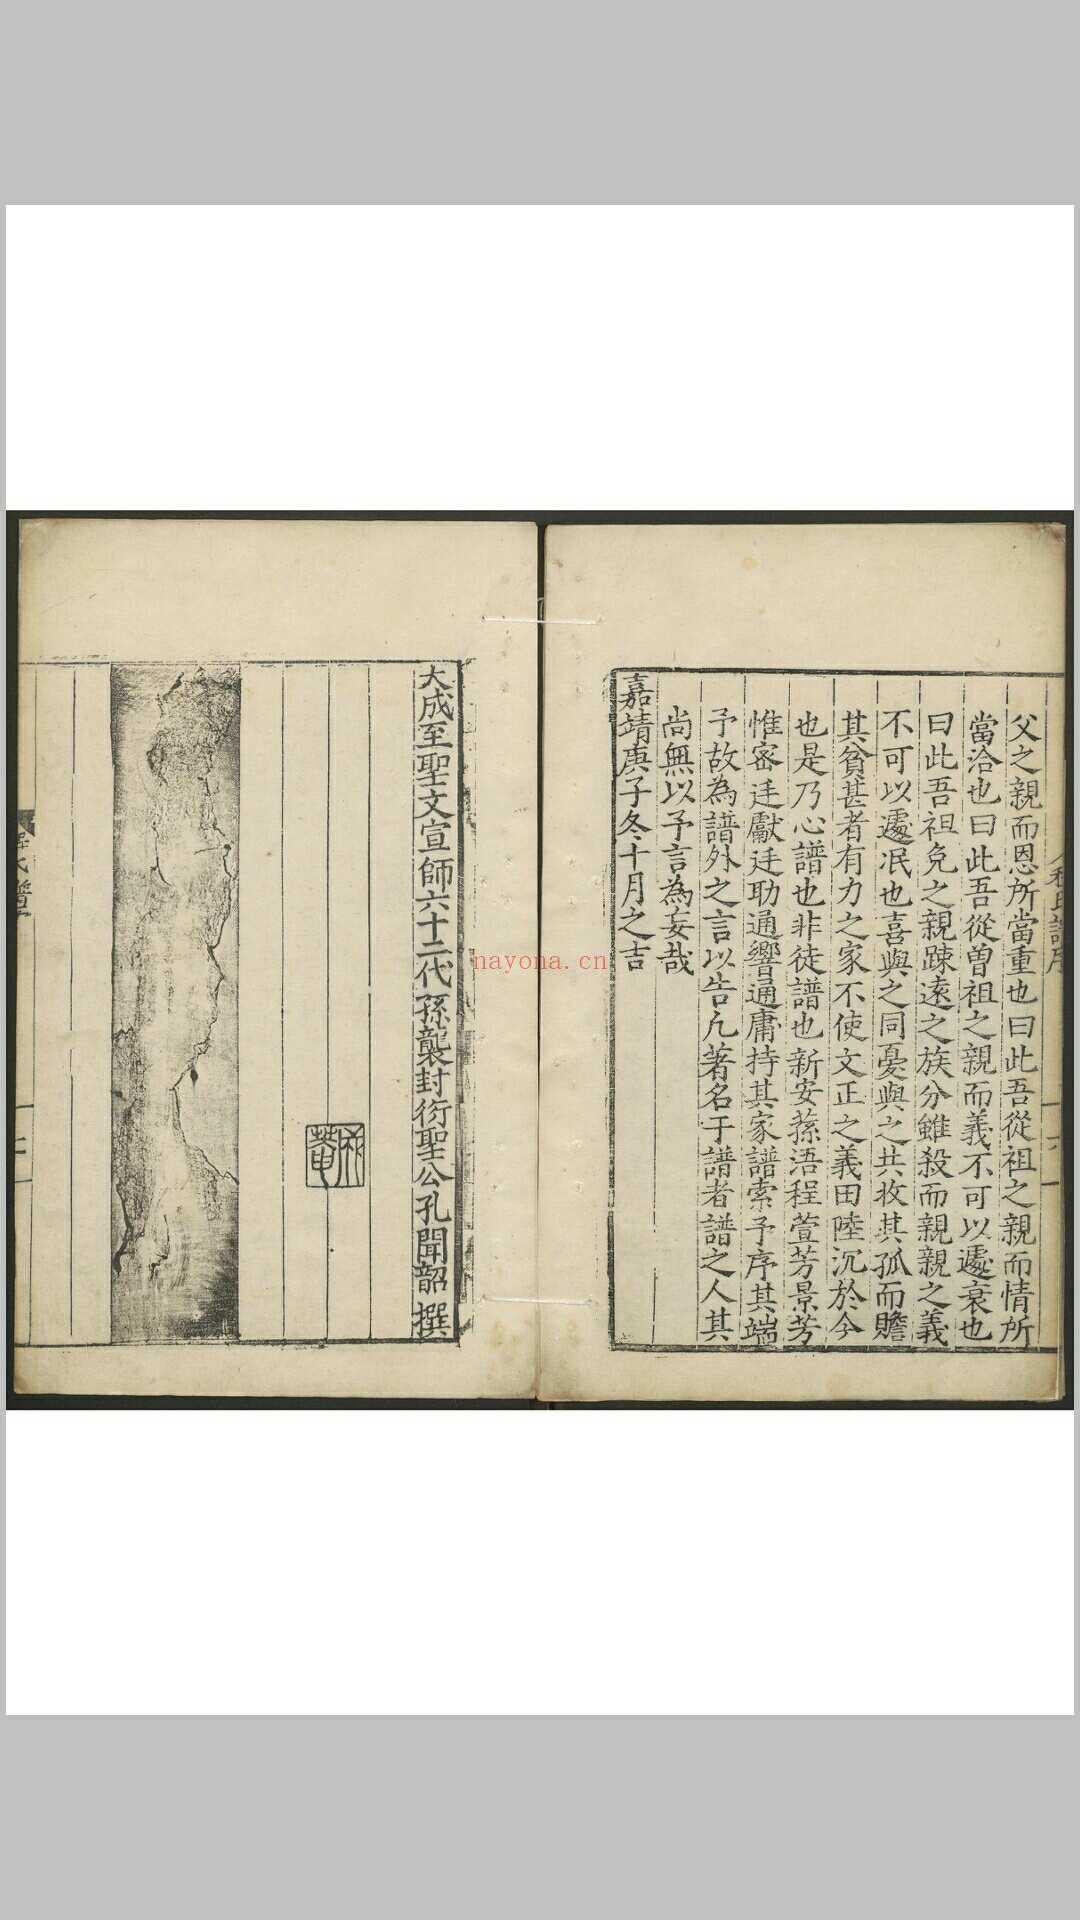 父之親而恩所當重也曰此吾從祖之親而情所
當洽也曰此吾從曾祖之親而義不可以遽衰也
曰此吾祖免之親踈遠之族分雖殺而親親之義
不可以遽泯也喜與之同憂與之共收其孤而贍
其貧甚者有力之家不使文正之義田陸沉於今
也是乃心譜也非徒譜也新安蓀浯程萱芳景芳
惟密廷獻廷助通響通庸持其家譜索予序其端
予故為譜外之言以告凡著名于譜者譜之人其
尚無以予言為妄哉
嘉靖庚子冬十月之吉
大成至聖文宣師六十二代孫襲封衍聖公孔聞韶撰
nayona.cn